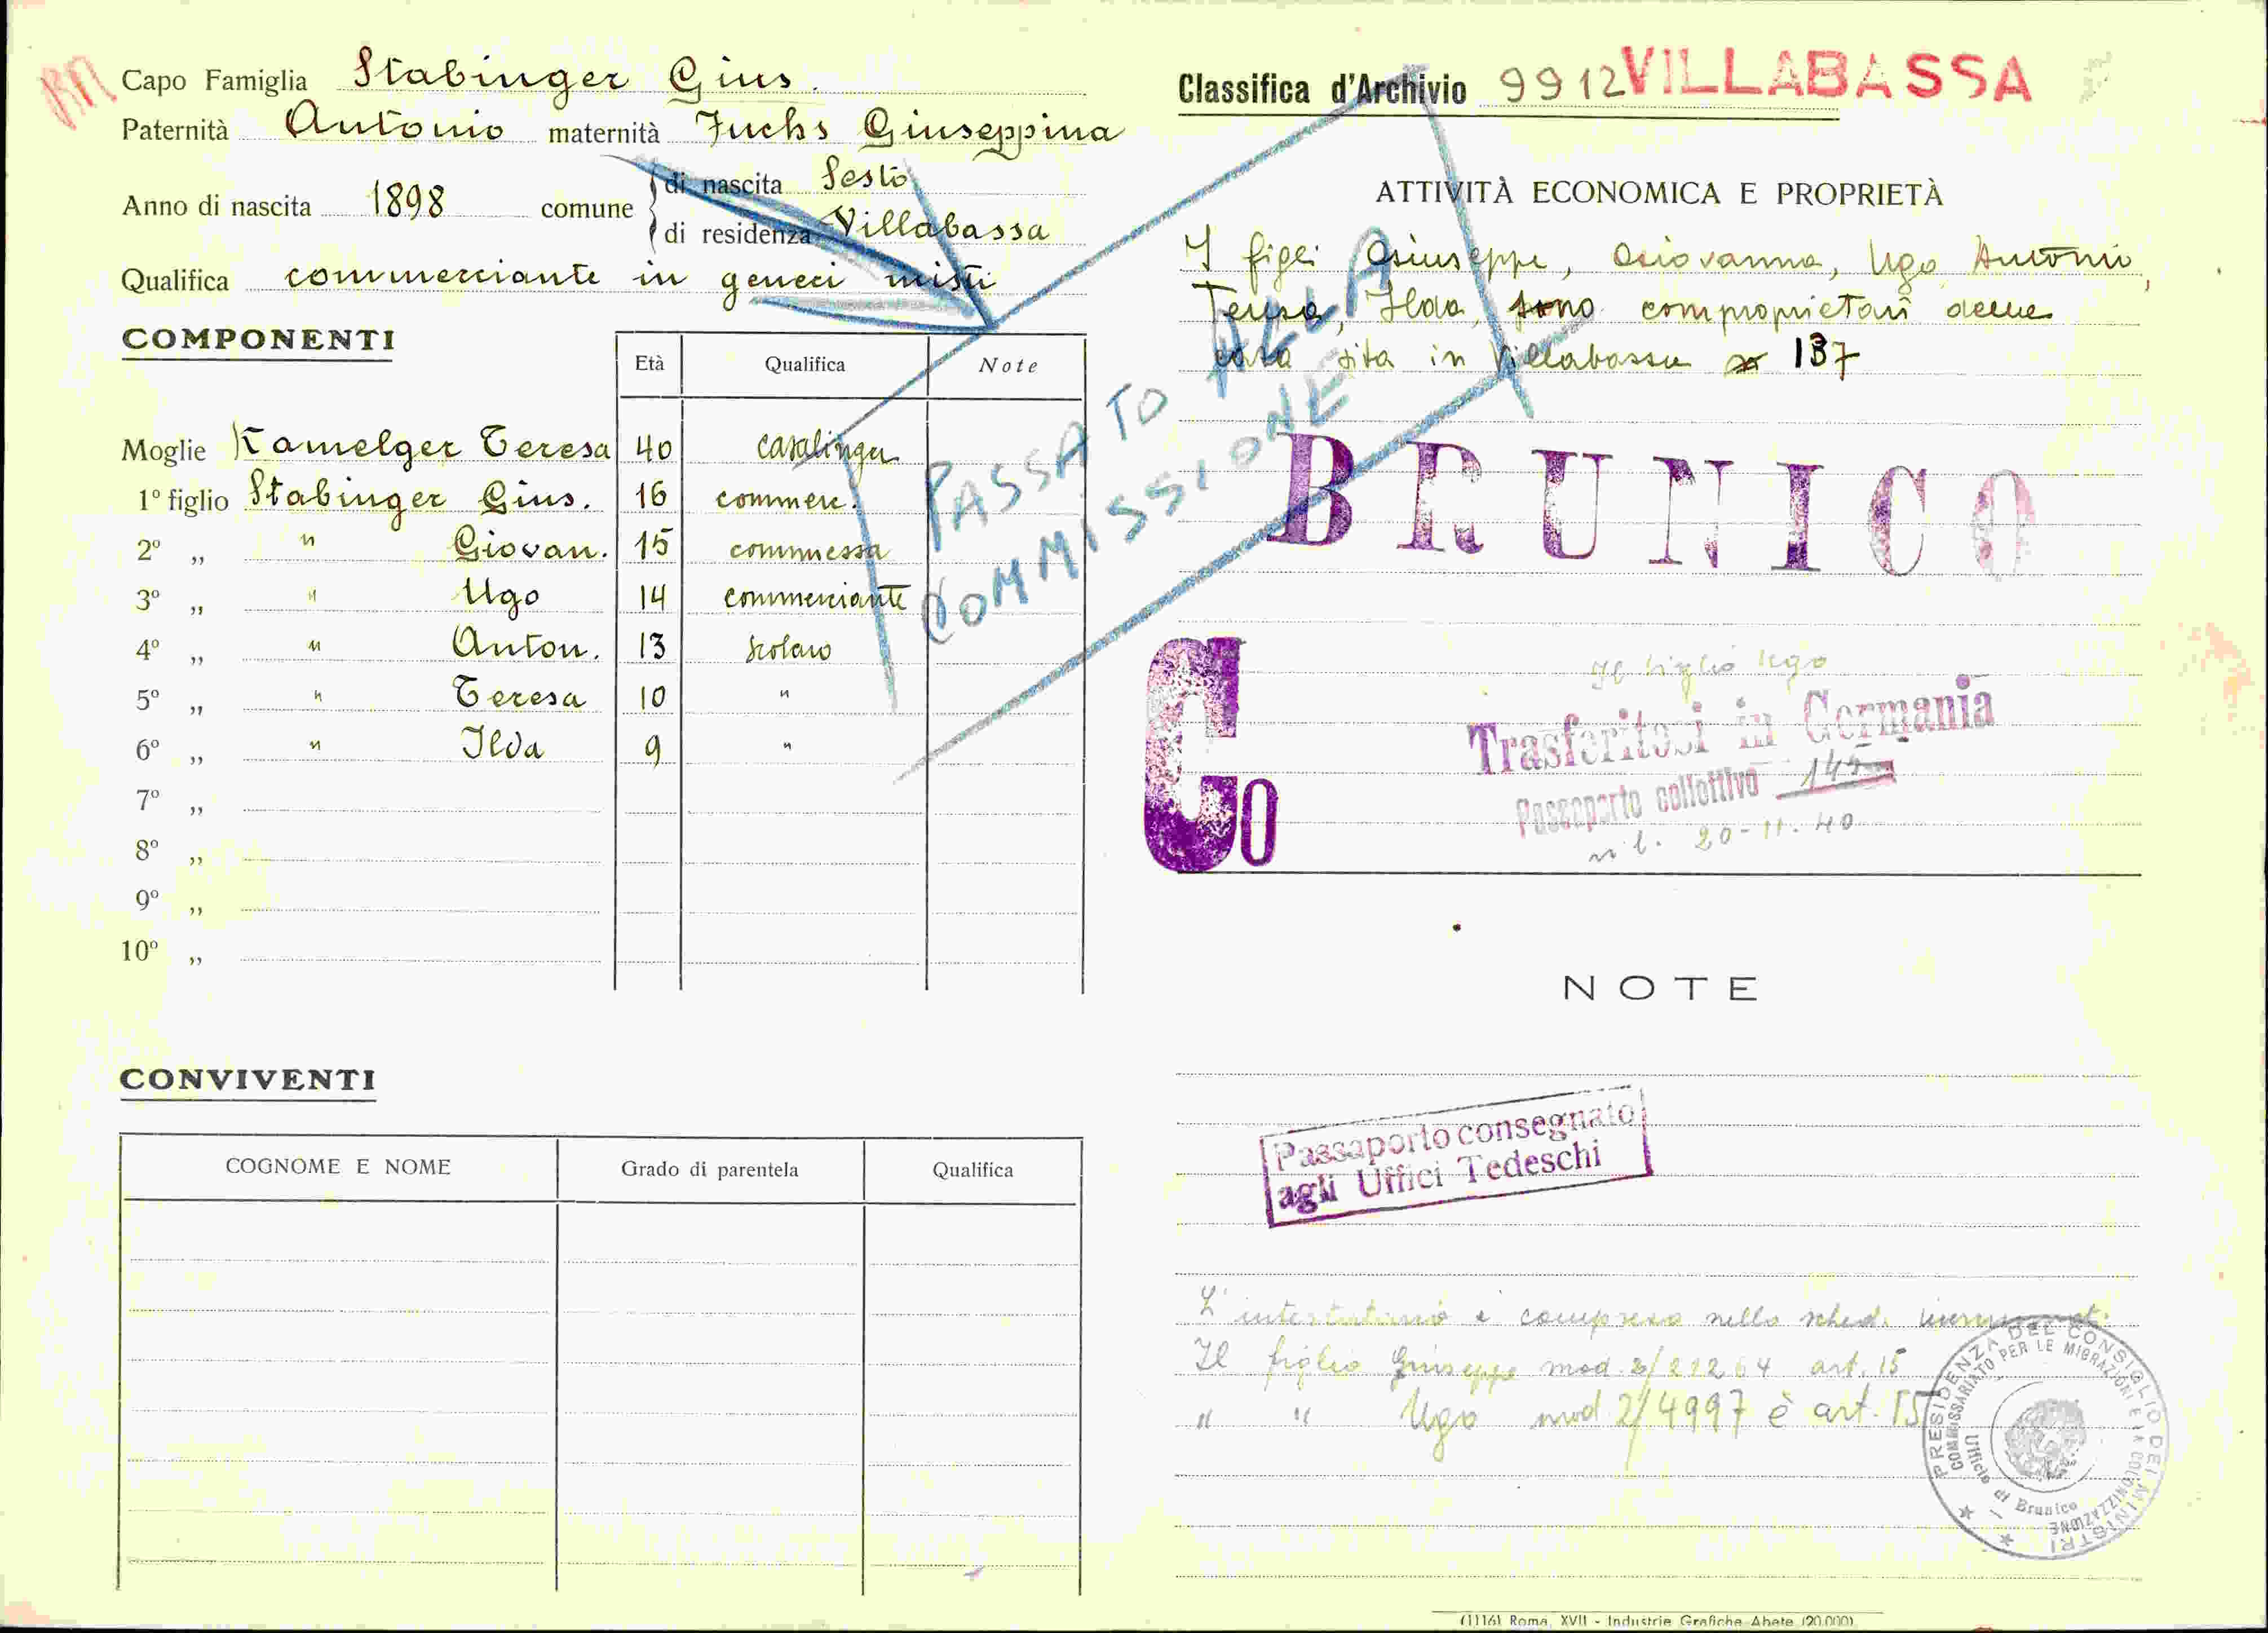 Capo Famiglia Stabinger Gius.
Paternità Antonio maternità Fuchs Giuseppina
Anno di nascita 1898 comune di nascita Sesto
di residenza Villabassa
Qualifica commerciante in generi misti
COMPONENTI
Età Qualifica Note
Moglie Kamelger Teresa 40 casalinga
1º figlio Stabinger Gius. 16 commerc.
2º „ " Giovan. 15 commessa
3º „ " Ugo 14 commerciante
4º „ " Anton. 13 scolaro
5º „ " Teresa 10 "
6º „ " Ilda 9 "
7º „
8º „
9º „
10º „
PASSATO ALLA
COMMISSIONE
CONVIVENTI
COGNOME E NOME Grado di parentela Qualifica
Classifica d'Archivio 9912 VILLABASSA
ATTIVITÀ ECONOMICA E PROPRIETÀ
I figli Giuseppe, Giovanna, Ugo Antonio,
Teresa, Ilda, sono comproprietari della
casa sita in Villabassa 137
BRUNICO
Co
Il figlio Ugo
Trasferitosi in Germania
Passaporto collettivo 145
20-11-40
NOTE
Passaporto consegnato
agli Uffici Tedeschi
L'intestatario è compreso nella sched.
Il figlio Giuseppe mod. 2/21264 art. 15
" " Ugo mod. 2/4997 è art. 15
PRESIDENZA DEL CONSIGLIO DEI MINISTRI
COMMISSARIATO PER LE MIGRAZIONI E LA COLONIZZAZIONE
Ufficio di Brunico
(1116) Roma, XVII - Industrie Grafiche Abete (20.000)